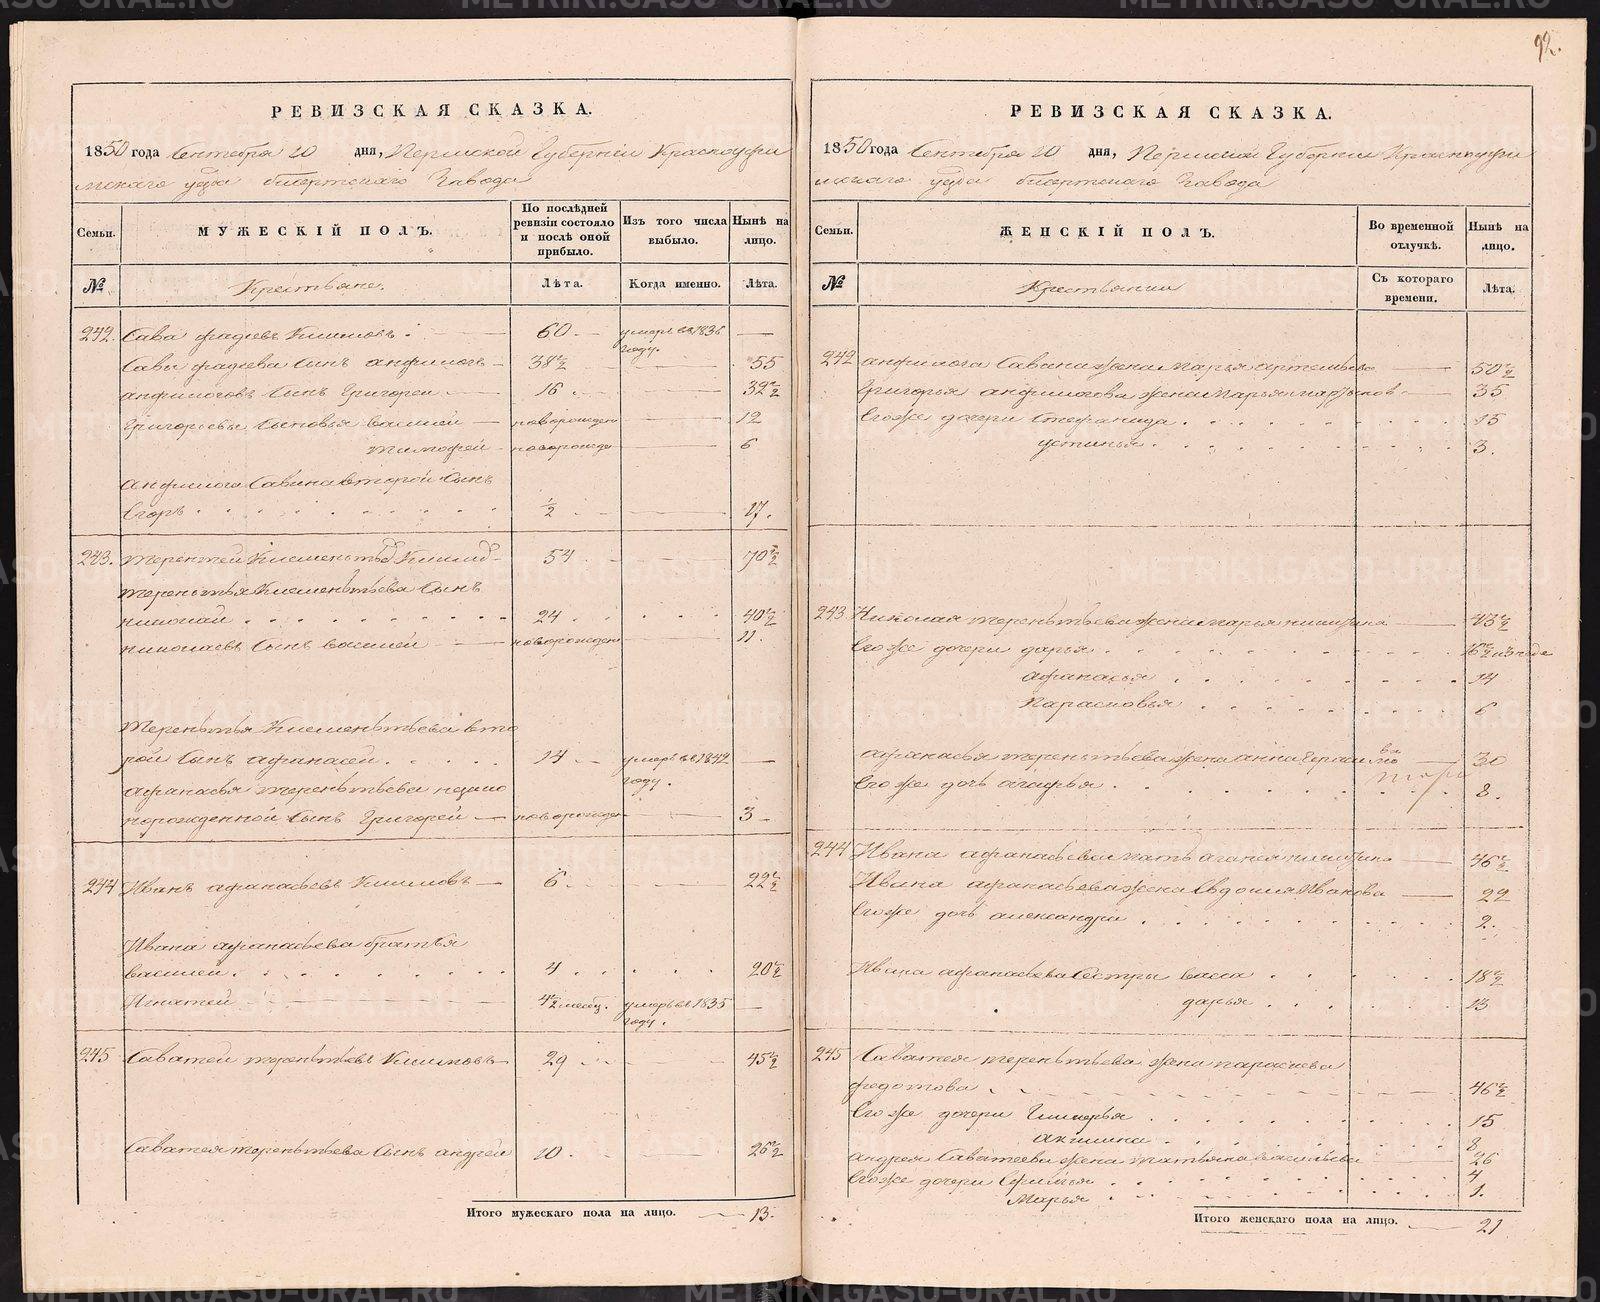 92.
РЕВИЗСКАЯ СКАЗКА.
1850 года Сентября 20 дня, Пермской Губерніи Красноуфи
мскаго уезда бисертскаго Завода
Семьи.
МУЖЕСКІЙ ПОЛЪ.
По послѣдней ревизіи состояло и послѣ оной прибыло.
Изъ того числа выбыло.
Нынѣ на лицо.
№
Крестьяне.
Лѣта.
Когда именно.
Лѣта.
242. Сава фадѣевъ Климовъ. 60. умеръ въ 1836 году. —
Савы фадѣева Сынъ анфилогъ 38½ 55
анфилоговъ Сынъ Григореи 16 32½
Григорьевы Сыновья василей новорожден 12
тимофей новорожде 6
Анфилога Савина второй Сынъ
Егоръ ½ 17.
243. терентей Клементьевъ Климов 54 70½
терентья Клементьева Сынъ
николай 24 40½
николаевъ Сынъ василей новорожден 11.
Терентья Клементьева вто
рой Сынъ афанасей 14 умеръ въ 1842 году. —
афанасья терентьева
рожденной Сынъ Григорей новорожден 3
244 Иванъ афанасьевъ Климовъ 6. 22½
Ивана афанасьева братья
василей 4 20½
Игнатей 4½ месец. умеръ въ 1835 году. —
245 Саватей терентьевъ Климовъ 29 45½
Саватея терентьева Сынъ андрей 10. 26½
Итого мужескаго пола на лицо. 13.
РЕВИЗСКАЯ СКАЗКА.
1850 года Сентября 20 дня, Пермской Губерніи Красноуфи
мскаго уезда бисертскаго Завода
Семьи.
ЖЕНСКІЙ ПОЛЪ.
Во временной отлучкѣ.
Нынѣ на лицо.
№
Крестьянки
Съ котораго времени.
Лѣта.
242 анфилога Савина жена марья артемьева 50½
Григорья анфилогова жена марья 35
Егоже дочери Стефанида 15
устинья 3.
243 Николая терентьева жена марья никитина 43½
Егоже дочери дарья 16½
афанасья 14
Парасковья 6
афанасья терентьева жена анна 30
Егоже дочь агафья 8.
244 Ивана афанасьева мать аганея никитина 46½
Ивана афанасьева жена Евдокия Иванова 22
Егоже дочь александра 2.
Ивана афанасьева Сестры васса 18½
дарья 13
245 Саватея терентьева жена парасковья
федотова 46½
Егоже дочери Гликерья 15
акилина 8
андрея Саватеева жена татьяна васильева 26
Егоже дочери 4
Марья 1.
Итого женскаго пола на лицо. 21
METRIKI.GASO-URAL.RU